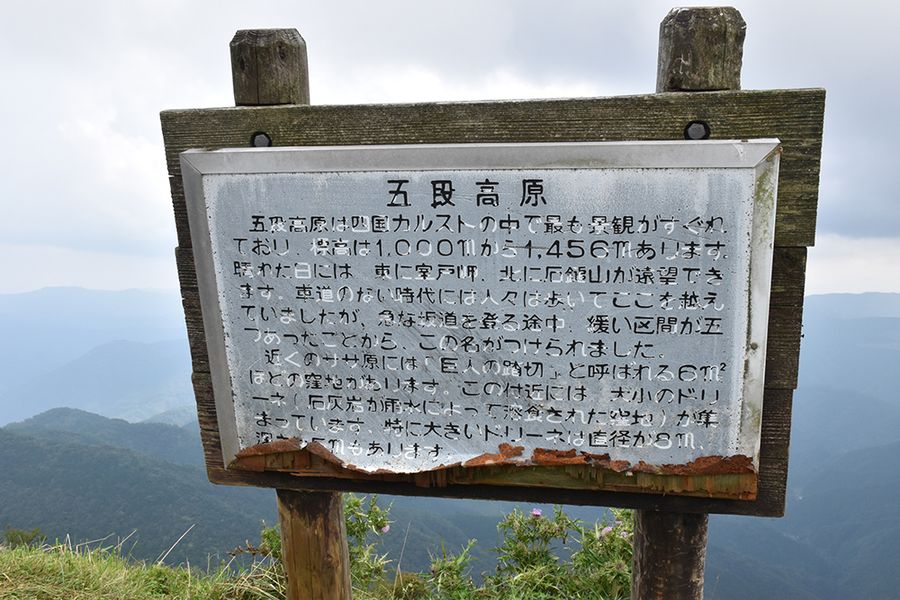 五段高原
五段高原は四国カルストの中で最も景観がすぐれ
ており 標高は1,000mから1,456mあります。
晴れた日には、東に室戸岬、北に石鎚山が遠望でき
ます。車道のない時代には人々は歩いてここを越え
ていましたが、急な坂道を登る途中、緩い区間が五
つあったことから、この名がつけられました。
近くのササ原には「巨人の踏切」と呼ばれる6m²
ほどの窪地があります。この付近には、大小のドリ
ーネ(石灰岩が雨水によって溶食された窪地)が集
まっています。特に大きいドリーネは直径が8m、
深さが5mもあります。